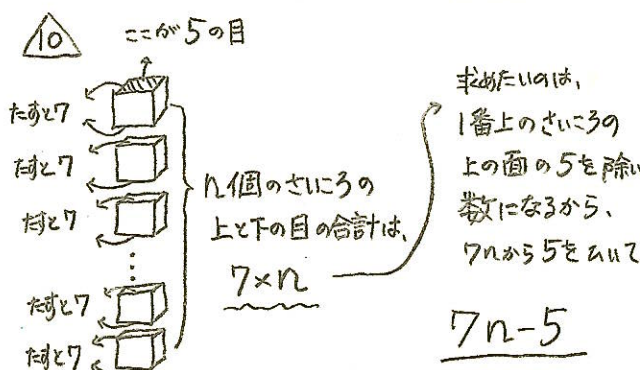 10
ここが5の目
たすと7
たすと7
たすと7
たすと7
たすと7
n個のさいころの
上と下の目の合計は、
7×n
求めたいのは、
1番上のさいころの
上の面の5を除い
数になるから、
7nから5をひいて
7n-5